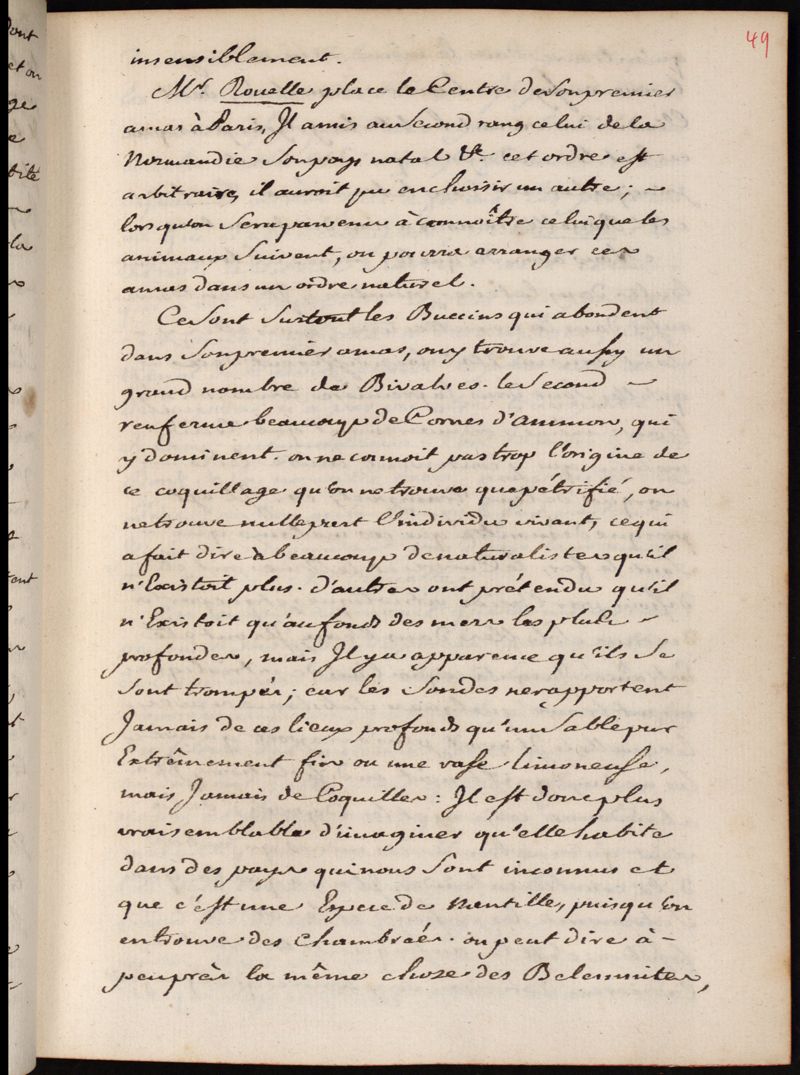 49
insensiblement.
Mr. Rouelle place le Centre de son premier
amas à Paris, Il a mis au second rang celui de la
Normandie son pays natal &c. cet ordre est
arbitraire, il auroit pu en choisir un autre; ~
lorsqu'on sera parvenu à connoître celui que les
animaux suivent, on pourra arranger ces
amas dans un ordre naturel.
Ce sont surtout les Buccins qui abondent
dans son premier amas, on y trouve aussy un
grand nombre de Bivalves. le Second ~
renferme beaucoup de Cornes d'ammon, qui
y dominent. on ne connoit pas trop l'origine de
ce coquillage qu'on ne trouve que pétrifié, on
ne trouve nulle part l'individu vivant, ce qui
a fait dire à beaucoup de naturalistes qu'il
n'Existoit plus. d'autres ont prétendu qu'il
n'Existoit qu'au fonds des mers les plus ~
profondes, mais Il y a apparence qu'ils se
sont trompés; car les Sondes ne rapportent
Jamais de ces lieux profonds qu'un Sable pur
Extrêmement fin ou une vase limoneuse,
mais Jamais de Coquilles: Il est donc plus
vraisemblable d'imaginer qu'elle habite
dans des pays qui nous sont inconnus et
que c'est une Espece de Nautilles, puisqu'on
en trouve des chambrées. on peut dire à-
peuprès la même chose des Belemnites,